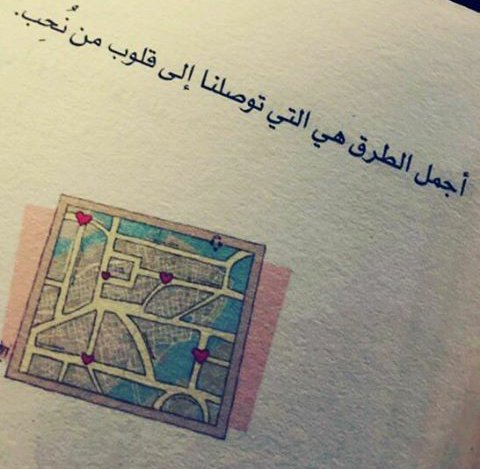 أجمل الطرق هي التي توصلنا إلى قلوب من نُحِب.